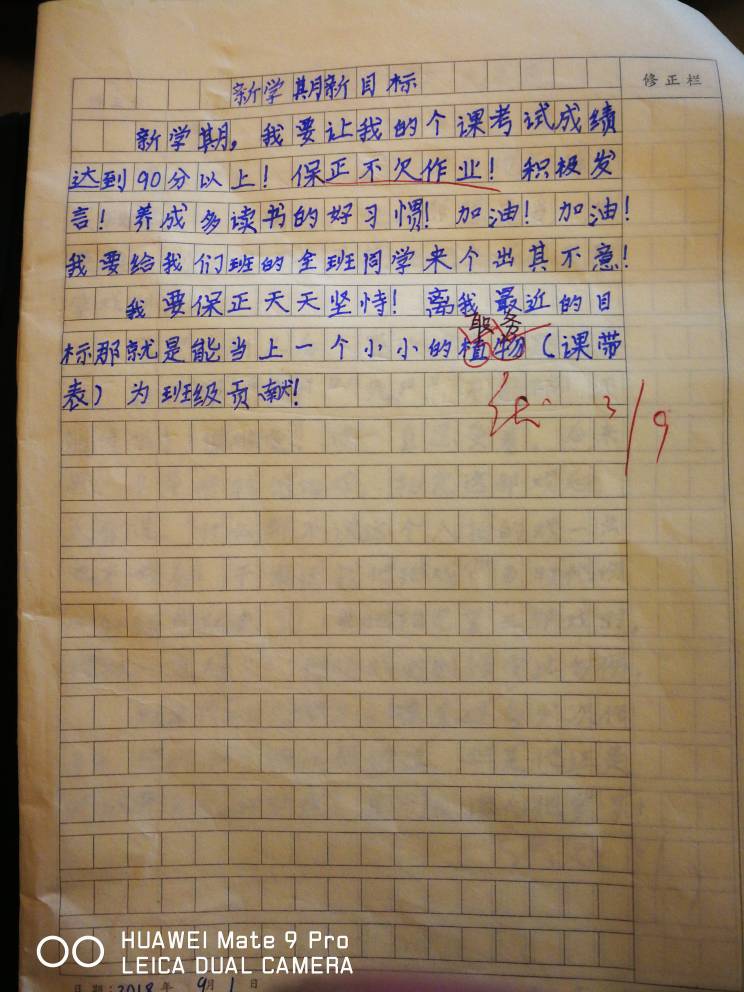 修正栏
新学期新目标
新学期，我要让我的个课考试成绩
达到90分以上！保正不欠作业！积极发
言！养成多读书的好习惯！加油！加油！
我要给我们班的全班同学来个出其不意！
我要保正天天坚恃！离我最近的目
职务
标那就是能当上一个小小的植物（课带
表）为班级贡献！
优 3/9
HUAWEI Mate 9 Pro
LEICA DUAL CAMERA
日期：2018年 9月1日